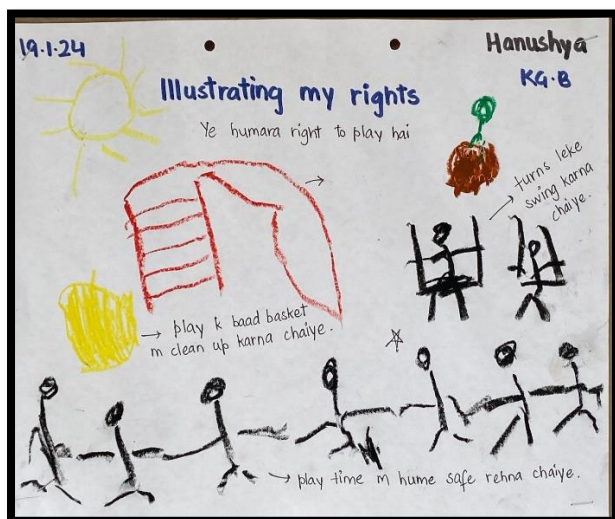 19.1.24
Hanushya
KG-B
Illustrating my rights
Ye humara right to play hai
turns leke
swing karna
chaiye.
play k baad basket
m clean up karna chaiye.
play time m hume safe rehna chaiye.